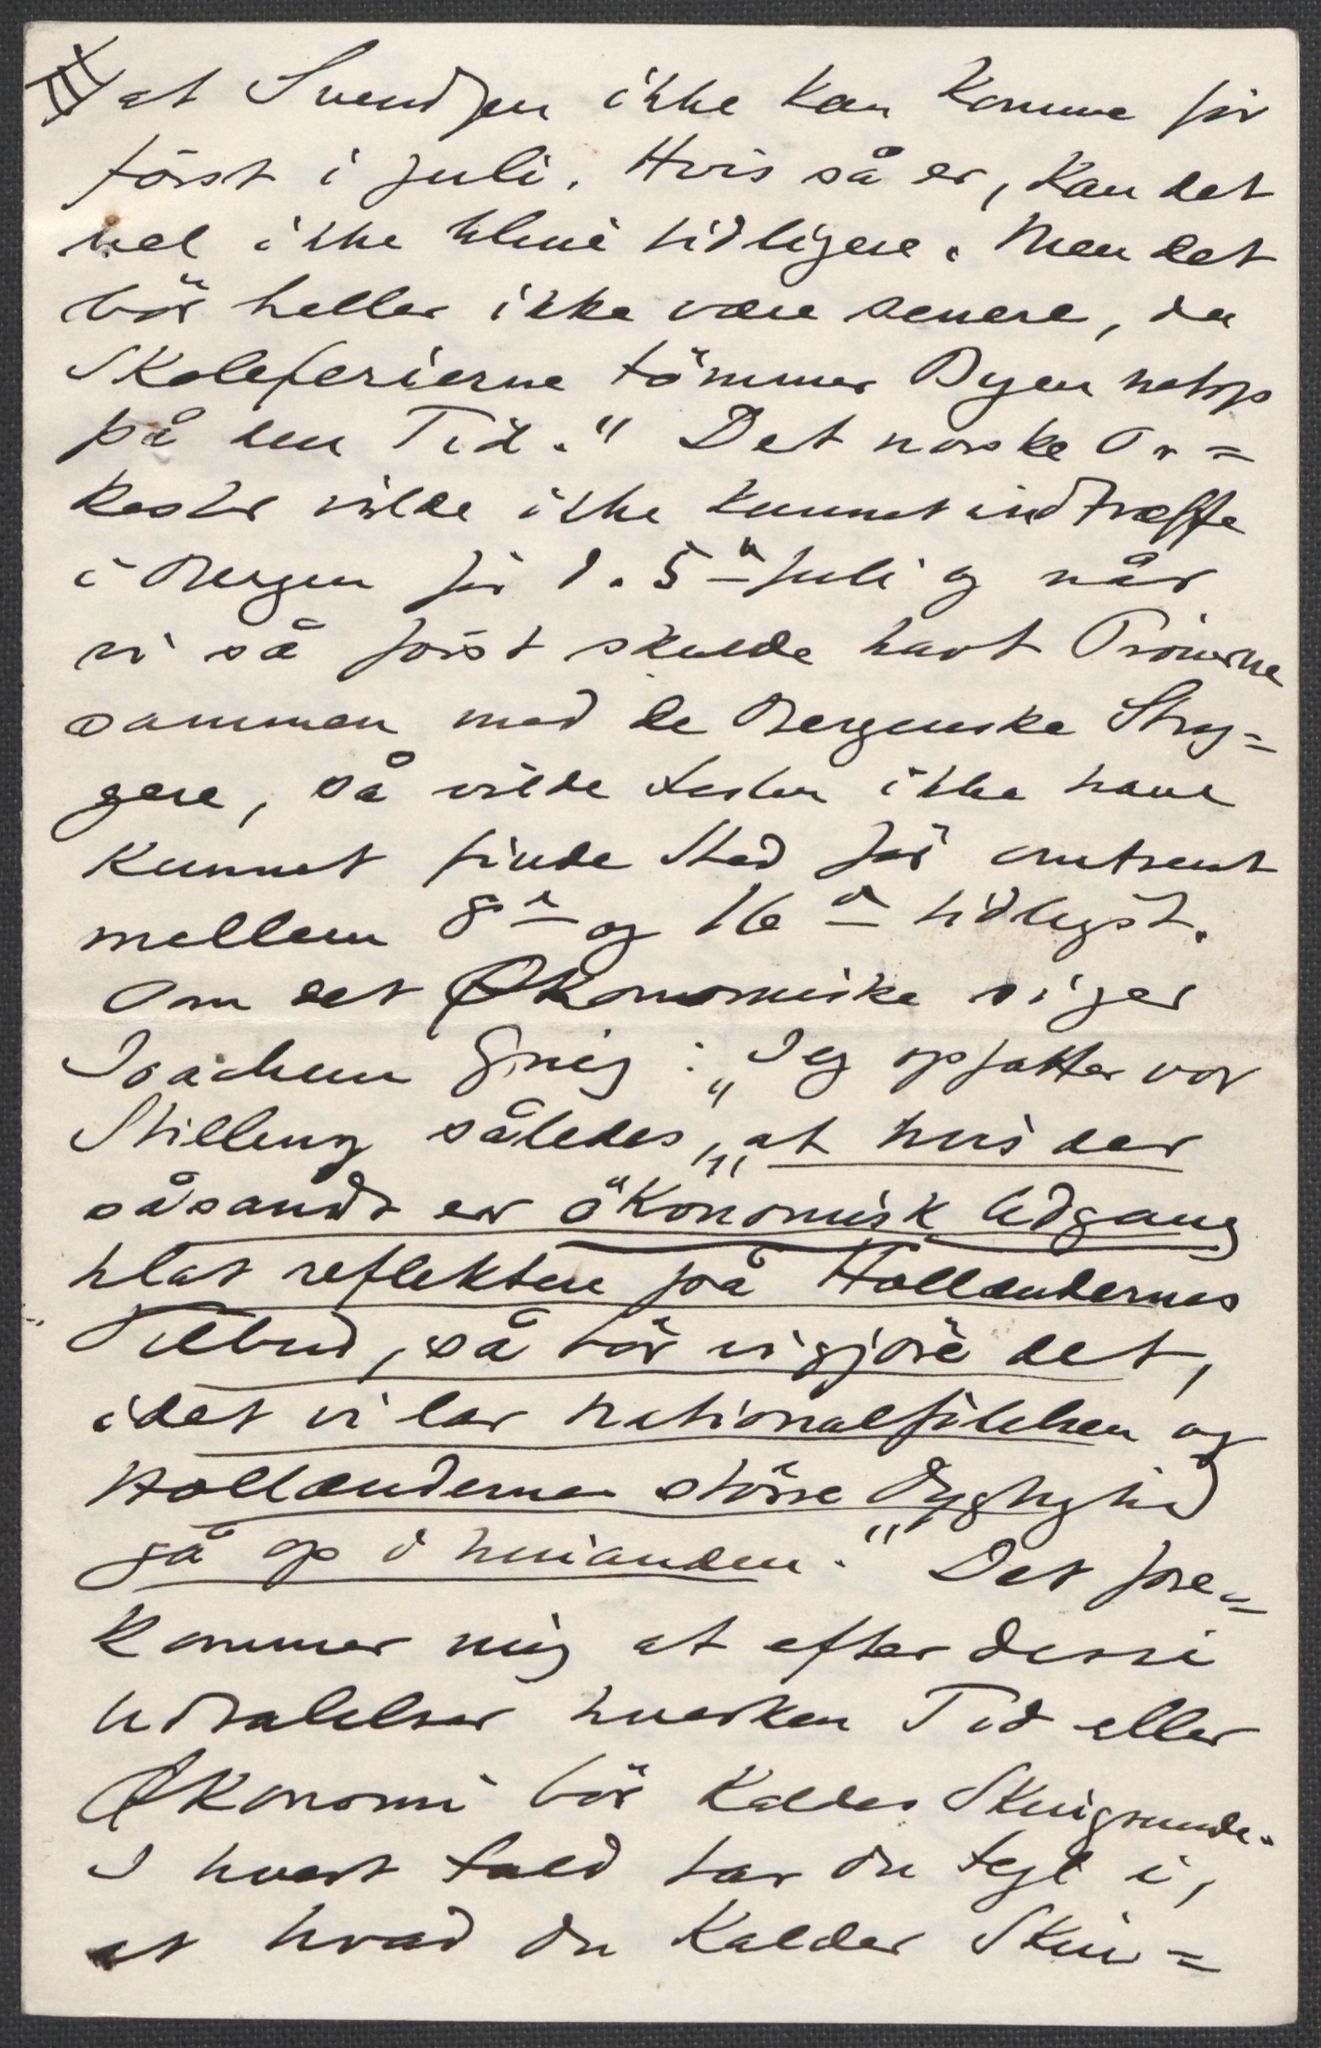 III at Svendsen ikke kan komme før
först i Juli. Hvis så er, kan det
vel ikke blive tidligere. Men det
bör heller ikke være senere, da
Skoleferierne tömmer Byen netop
på den Tid." Det norske Or=
kester vilde ikke kunnet indtræffe
i Bergen før d. 5te Juli og når
vi så först skulde havt Pröverne
sammen med de Bergenske Stry=
gere, så vilde Festen ikke have
kunnet finde Sted för omtrent
mellem 8de og 16de tidligst.
Om det Økonomiske siger
Joachim Grieg: „Jeg opfatter vor
Stilling således, „at hvis der
såsandt er ökonomisk Adgang
til at reflektere på Hollændernes
Tilbud, så bör vi gjöre det,
idet vi lar Nationalfölelsen og
Hollændernes större Dygtighed
gå op i hinanden." Det fore=
kommer mig at efter disse
Udtalelser hverken Tid eller
Økonomi bör kaldes Skingrunde.
I hvert Fald har du fejl i,
at hvad du kalder Skin=